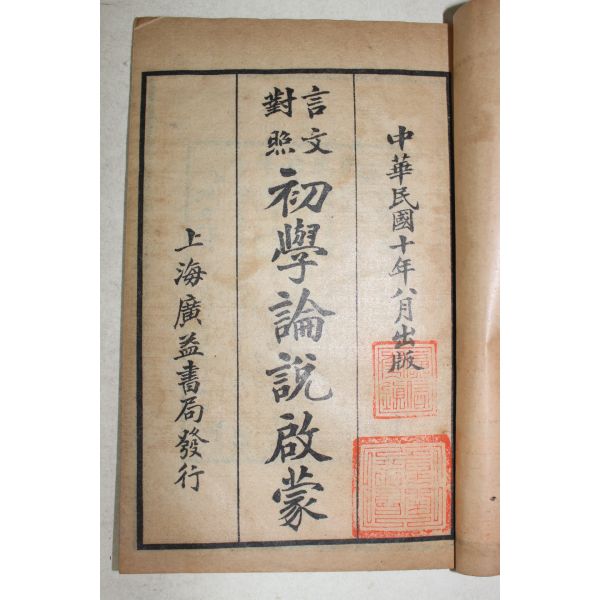 中華民國十年八月出版
言文
對照
初學論說啟蒙
上海廣益書局發行